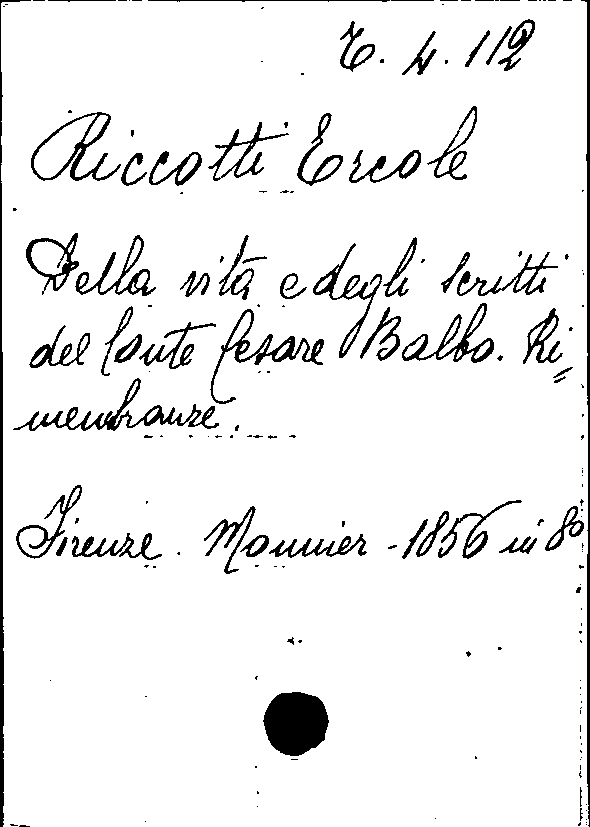 T. 4. 112
Riccotti Ercole
Della vita e degli scritti
del Conte Cesare Balbo. Ri=
membranze.
Firenze. Monnier - 1856 in 8º